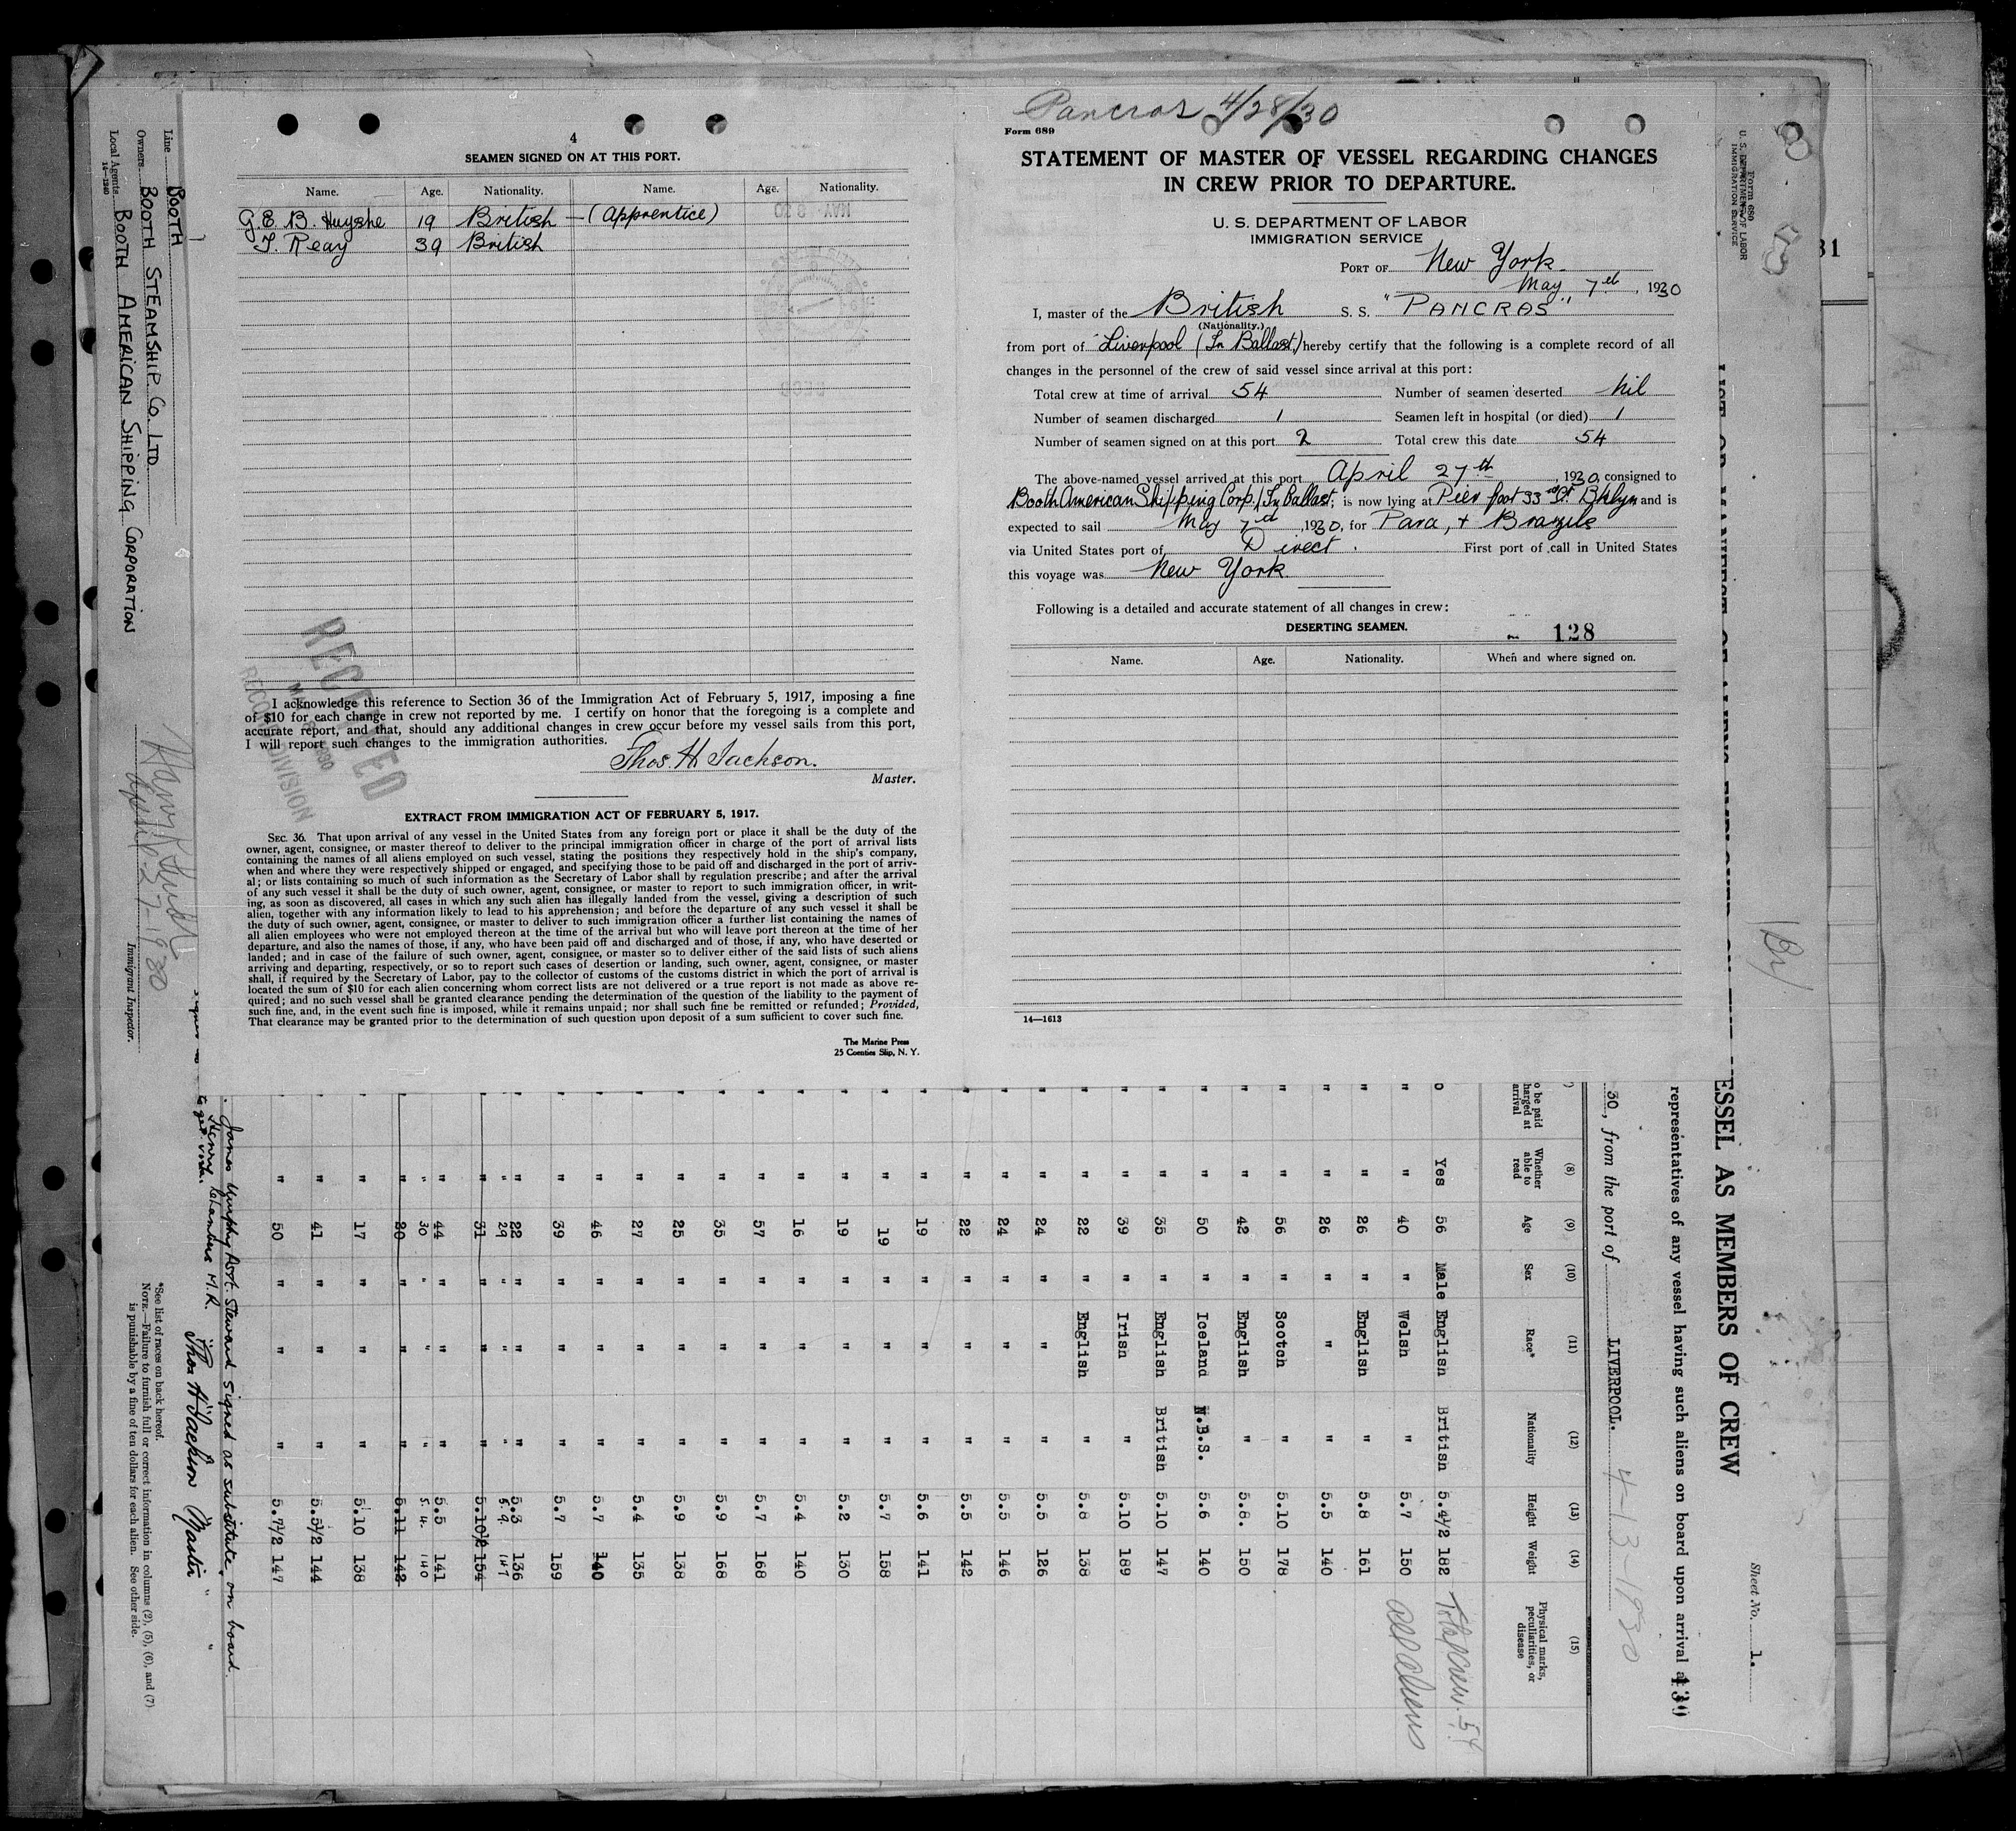 Pancras 4/28/30
Form 689
STATEMENT OF MASTER OF VESSEL REGARDING CHANGES
IN CREW PRIOR TO DEPARTURE.
U. S. DEPARTMENT OF LABOR
IMMIGRATION SERVICE
PORT OF New York
May 7th, 1930
I, master of the British S. S. "PANCRAS"
(Nationality.)
from port of Liverpool (In Ballast) hereby certify that the following is a complete record of all
changes in the personnel of the crew of said vessel since arrival at this port:
Total crew at time of arrival 54 Number of seamen deserted Nil
Number of seamen discharged 1 Seamen left in hospital (or died) 1
Number of seamen signed on at this port 2 Total crew this date 54
The above-named vessel arrived at this port April 27th, 1930, consigned to
Booth American Shipping Corp. / In Ballast; is now lying at Pier foot 33rd St. Bklyn and is
expected to sail May 7th, 1930, for Para, + Brazils
via United States port of Direct. First port of call in United States
this voyage was New York
Following is a detailed and accurate statement of all changes in crew:
DESERTING SEAMEN.
128
Name. Age. Nationality. When and where signed on.
14—1613
4
SEAMEN SIGNED ON AT THIS PORT.
Name. Age. Nationality. Name. Age. Nationality.
G. E. B. Huyshe 19 British - (Apprentice)
J. Reay 39 British
RECEIVED
RECORD DIVISION
I acknowledge this reference to Section 36 of the Immigration Act of February 5, 1917, imposing a fine
of $10 for each change in crew not reported by me. I certify on honor that the foregoing is a complete and
accurate report, and that, should any additional changes in crew occur before my vessel sails from this port,
I will report such changes to the immigration authorities.
Thos. H. Jackson.
Master.
EXTRACT FROM IMMIGRATION ACT OF FEBRUARY 5, 1917.
SEC. 36. That upon arrival of any vessel in the United States from any foreign port or place it shall be the duty of the
owner, agent, consignee, or master thereof to deliver to the principal immigration officer in charge of the port of arrival lists
containing the names of all aliens employed on such vessel, stating the positions they respectively hold in the ship's company,
when and where they were respectively shipped or engaged, and specifying those to be paid off and discharged in the port of arriv-
al; or lists containing so much of such information as the Secretary of Labor shall by regulation prescribe; and after the arrival
of any such vessel it shall be the duty of such owner, agent, consignee, or master to report to such immigration officer, in writ-
ing, as soon as discovered, all cases in which any such alien has illegally landed from the vessel, giving a description of such
alien, together with any information likely to lead to his apprehension; and before the departure of any such vessel it shall be
the duty of such owner, agent, consignee, or master to deliver to such immigration officer a further list containing the names of
all alien employees who were not employed thereon at the time of the arrival but who will leave port thereon at the time of her
departure, and also the names of those, if any, who have been paid off and discharged and of those, if any, who have deserted or
landed; and in case of the failure of such owner, agent, consignee, or master so to deliver either of the said lists of such aliens
arriving and departing, respectively, or so to report such cases of desertion or landing, such owner, agent, consignee, or master
shall, if required by the Secretary of Labor, pay to the collector of customs of the customs district in which the port of arrival is
located the sum of $10 for each alien concerning whom correct lists are not delivered or a true report is not made as above re-
quired; and no such vessel shall be granted clearance pending the determination of the question of the liability to the payment of
such fine, and, in the event such fine is imposed, while it remains unpaid; nor shall such fine be remitted or refunded; Provided,
That clearance may be granted prior to the determination of such question upon deposit of a sum sufficient to cover such fine.
The Marine Press
25 Coenties Slip, N. Y.
Form 680
U. S. DEPARTMENT OF LABOR
IMMIGRATION SERVICE
31
Sheet No. 1.
ESSEL AS MEMBERS OF CREW
representatives of any vessel having such aliens on board upon arrival
30, from the port of LIVERPOOL. 4-13-1930
o be paid harged at arrival (8) Whether able to read (9) Age (10) Sex (11) Race* (12) Nationality (13) Height (14) Weight (15) Physical marks, peculiarities, or disease
o Yes 56 Male English British 5.4½ 182 Total Crew. 54
" " 40 " Welsh " 5.7 150 all aliens
" " 26 " English " 5.8 161
" " 26 " " " 5.5 140
" " 56 " Scotch " 5.10 178
" " 42 " English " 5.8. 150
" " 50 " Iceland N.B.S. 5.6 140
" " 35 " English British 5.10 147
" " 39 " Irish " 5.10 189
" " 22 " English " 5.8 138
" " 24 " " " 5.5 126
" " 24 " " " 5.5 146
" " 22 " " " 5.5 142
" " 19 " " " 5.6 141
" " 19 " " " 5.7 158
" " 19 " " " 5.2 130
" " 16 " " " 5.4 140
" " 57 " " " 5.7 168
" " 35 " " " 5.9 168
" " 25 " " " 5.9 138
" " 27 " " " 5.4 135
" " 46 " " " 5.7 140
" " 39 " " " 5.7 159
" " 22 " " " 5.3 136
" 29 " " " 5.9. 147
" " 31 " " " 5.10½ 154
" " 44 " " " 5.5 141
" 30 " " " 5.4. 140
" " 20 " " " 5.11 142
" " 17 " " " 5.10 138
" " 41 " " " 5.5½ 144
" " 50 " " " 5.7½ 147
James Asst. Steward signed as substitute, on board.
Henry Chambers M.R. " "
Thos H Jackson Master
*See list of races on back hereof.
NOTE.—Failure to furnish full or correct information in columns (2), (5), (6), and (7)
is punishable by a fine of ten dollars for each alien. See other side.
Line BOOTH
Owners BOOTH STEAMSHIP. CO. LTD
Local Agents BOOTH AMERICAN SHIPPING CORPORATION
14—1240
April-27-1930
Immigrant Inspector.